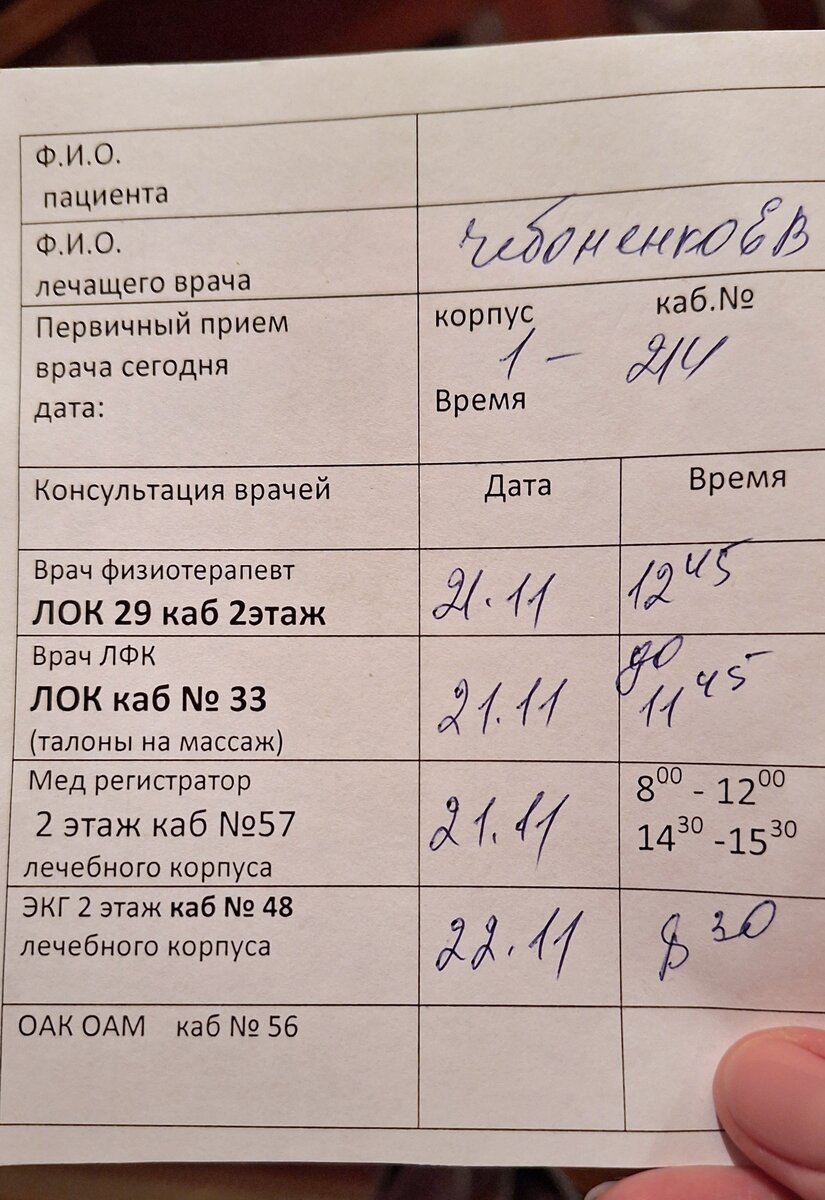 Ф.И.О.
пациента
Ф.И.О.
лечащего врача
Чебоненко Е В
Первичный прием
врача сегодня
дата:
корпус каб.№
1 – 214
Время
Консультация врачей Дата Время
Врач физиотерапевт
ЛОК 29 каб 2этаж
21.11 12 45
Врач ЛФК
ЛОК каб № 33
(талоны на массаж)
21.11 до
11 45
Мед регистратор
2 этаж каб №57
лечебного корпуса
21.11
8 00 - 12 00
14 30 -15 30
ЭКГ 2 этаж каб № 48
лечебного корпуса
22.11 8 30
ОАК ОАМ каб № 56